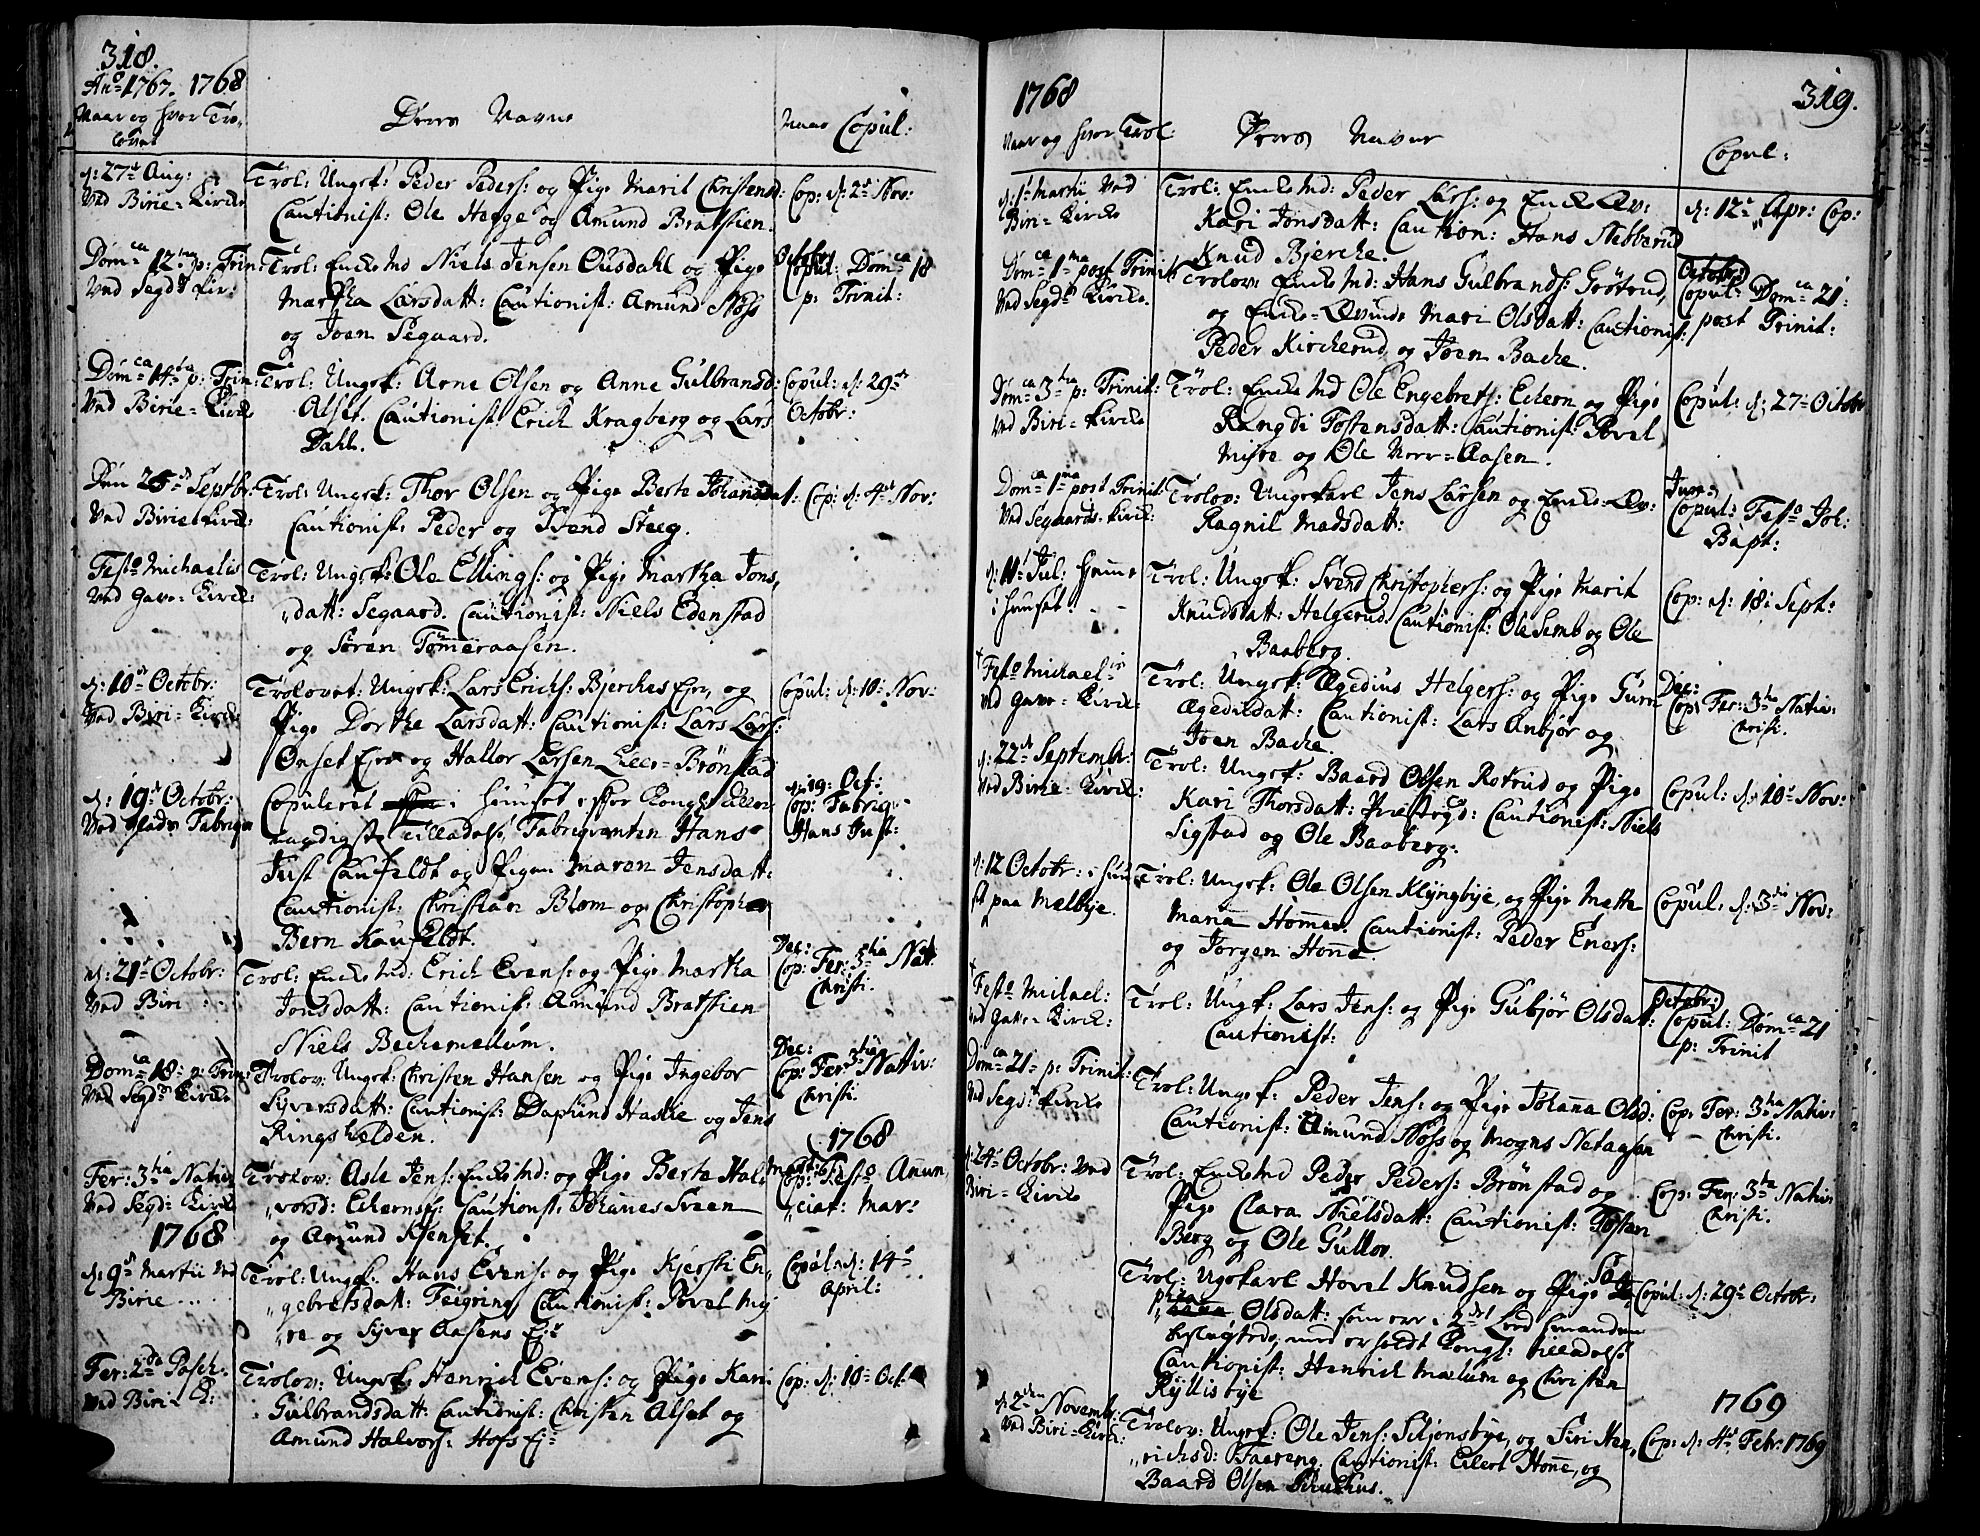 318.
An° 1767. 1768
Naar og hvor Tro-
lovet
Deres Navne
Naar Copul:
d: 27de Aug:
Ved Birie-Kircke
Trol: Ungk: Peder Peders: og Pige Marit Christensd:
Cautionist: Ole Hegge og Amund Bratstien.
Cop: d: 2de Nov:
Dom-ca 12-ma p: Trin:
Ved Segds Kir:
Trol: Encke Md Niels Jensen Ousdahl og Pige
Martha Larsdatt: Cautionist: Amund Nöss
og Joen Segaard.
Octobr
Copul: Dom-ca 18
p: Trinit:
Dom-ca 14-ta p: Trin:
Ved Birie-Kircke
Trol: Ungk: Arne Olsen og Anne Gulbransd:
Alset. Cautionist: Erich Kragberg og Lars
Dahl.
Copul: d: 29de
Octobr:
Den 25de Septbr:
Ved Birie Kirck:
Trol: Ungk: Thor Olsen og Pige Berte Johansdat:
Cautionist: Peder og Svend Steeg.
Cop: d: 4de Nov:
Festo Michaelis
Ved Gave-Kirck:
Trol: Ungk: Ole Ellings: og Pige Martha Jons,
„datt: Segaard. Cautionist: Niels Edenstad
og Sören Tömmeraasen.
d: 10de Octobr:
Ved Biri-Kirck:
Trolovet: Ungk: Lars Erichs: Bjerches Eje, og
Pige Dorthe Larsdatt: Cautionist: Lars Lars:
Onset Eje og Hallor Larsen Brönstad
Copul: d: 10: Nov:
d: 19de Octobr:
Ved Glads Fabriqu
Copuleret i Huuset efter Kongl: aller
naadigste Tilladelse, Fabriqvanten Hans
Just Caufeldt og Pigen Maren Jensdatt:
Cautionist: Christian Blom og Christopher
Bern Kaufeldt.
d: 19: Oct:
Cop: Fabriq-
Hans Just:
d: 21de Octobr:
Ved Biri
Trol: Encke Md: Erich Evens: og Pige Martha
Jonsdatt: Cautionist: Amund Bratstien
Niels Bechemellum.
Dec:
Cop: Fer: 3-tia Nat:
Christi.
Dom-ca 18- p: Trin:
Ved Segds Kircke
Trolov: Ungk: Christen Hansen og Pige Ingebor
Syversdatt: Cautionist: Dagfind Haskie og Jens
Ringshelden.
Dec:
Cop: Fer: 3-tia Nativ:
Christi.
1768
Fer: 3-tia Nativ:
Ved Segd: Kircke
Trolov: Asle Jens: Encke Md: og Pige Berte Hal-
„vorsd: Echernsej: Cautionist: Johanes Sveen
og Amund Kienset.
Mart:
Cop: Festo Anun,
„ciat: Mar:
1768
d: 9de Martii Ved
Birie
Trol: Ungk: Hans Evens: og Pige Kjersti En,
„gebretsdatt: Feigring, Cautionist: Povel My
„re og Syver Aasens Ej:
Copul: d: 14de
April:
Fer: 2-da Pasch:
Ved Biri K:
Trolov: Ungk: Henrich Evens: og Pige Kari
Gulbrandsdatt: Cautionist: Christen Alset og
Amund Halvors: Hofs Ej:
Cop: d: 10- Oct:
1768
319.
Naar og hvor Trol:
Deres Navne
Copul:
d: 1de Martii Ved
Biri-Kircke
Trol: Encke Md: Peder Lars: og Encke Qv:
Kari Jonsdatt: Caution: Hans Nebberud
Knud Bjerche.
d: 12te Apr: Cop:
Dom-ca 1-ma post Trinit:
Ved Segds Kircke.
Trolov: Encke Md: Hans Gulbrands: Grötrud,
og Encke-Qvinde Mari Olsdatt: Cautionist:
Peder Kircherud og Joen Bache.
Octobr:
Copul: Dom-ca 21:
post Trinit:
Dom-ca 3-tia p: Trinit:
Ved Biri-Kircke
Trol: Encke Md Ole Engebrets: Echern og Pige
Rangdi Tostensdatt: Cautionist: Povel
Myre og Ole Norr-Aasen.
Copul: d: 27- Octobr
Dom-ca 1-ma post Trinit:
Ved Segaards-Kirck:
Trolov: Ungekarl Jens Larsen og Encke-Qv:
Ragnil Madsdatt:
Jun:
Copul: Festo Joh:
Bapt:
d: 11te Jul: hjemme
i huuset.
Trol: Ungk: Svend Christophers: og Pige Marit
Knudsdatt: Helgerud. Cautionist: Ole Semb og Ole
Baaberg.
Cop: d: 18: Sept:
Festo Michael-is
Ved Gave-Kirck:
Trol: Ungk: Ægedius Helgers: og Pige Guri
Ægedidatt: Cautionist: Lars Anbjör og
Joen Bache.
Dec:
Cop: Fer: 3-tia Nativ:
Christi.
d: 22de Septembr:
Ved Birie-Kirck:
Trol: Ungk: Baard Olsen Rotrud og Pige
Kari Thorsdatt: Cautionist: Niels
Sigstad og Ole Baaberg.
Copul: d: 10de Nov:
d: 12 Octobr: i huu-
set paa Mælbye.
Trol: Ungk: Ole Olsen Klyngbye, og Pige Mette
Maria Homner. Cautionist: Peder Eners:
og Jörgen Honne.
Copul: d: 3die Nov:
Festo Michael:
Ved Gave-Kirck:
Trol: Ungk: Lars Jens: og Pige Gubjör Olsdatt:
Cautionist:
Octobr:
Copul: Dom-ca 21
p: Trinit
Dom-ca 21- p: Trinit:
Ved Segds Kircke
Trol: Ungk: Peder Jens: og Pige Johanna Olsd:
Cautionist: Amund Nöss og Mogns Netagsen
Cop: Fer: 3-tia Nativ:
Christi.
d: 24de Octobr: Ved
Biri-Kircke
Trol: Encke Md Peder Peders: Brönstad og
Pige Clara Nielsdatt: Cautionist: Tosten
Berg og Ole Gullov.
Cop: Fer: 3-tia Nativ
Christi.
Trol: Ugekarl Hovel Knudsen og Pige So
phia Olsdatt: som ere i 2det Leed hinanden
beslægtede, med erholdt Kongl: Tilladelse
Cautionist: Henrich Mælum og Christen
Ryllisbye
Copul: d: 29- Octobr:
d: 2den Novembr:
Ved Biri-Kirck:
Trolov: Ungk: Ole Jens: Siljonsbye, og Siri Hen,
„richsd: Taareng. Cautionist: Eilert Honne, og
Baard Olsen Skulhus.
1769
Cop: d: 4de Febr: 1769